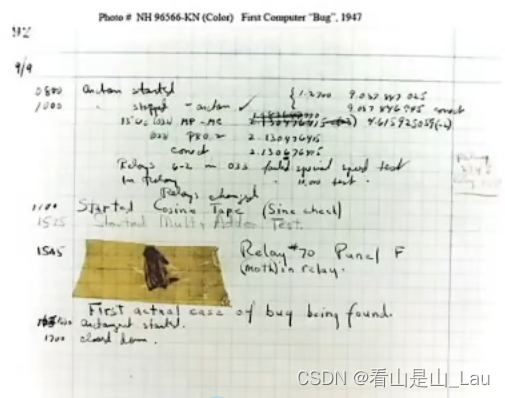 Photo # NH 96566-KN (Color) First Computer "Bug", 1947
92
9/9
0800 Antan started
1000 " stopped - antan ✓ { 1.2700 9.037 847 025
9.037 846 995 correct
13"UC (032) MP - MC 4.615925059(-2)
(033) PRO 2 2.130476415
correct 2.130676415
Relays 6-2 in 033 failed special speed test
In Relay " 10,000 test.
Relays changed
1100 Started Cosine Tape (Sine check)
1525 Started Multi Adder Test.
1545 Relay #70 Panel F
(moth) in relay.
First actual case of bug being found.
1630 antangent started.
1700 closed down.
CSDN @看山是山_Lau